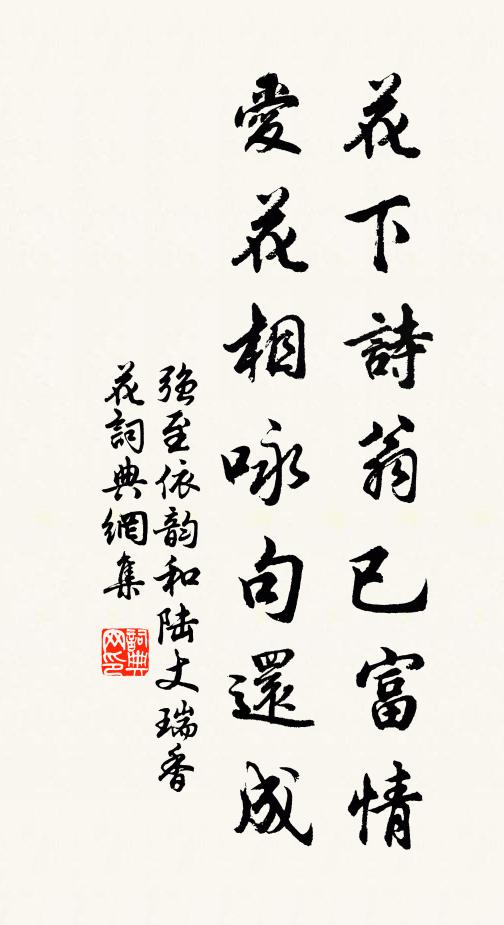 花下詩翁已富情
愛花相咏句還成
強至依韵和陆丈瑞香
花詞典網集
詞典网印